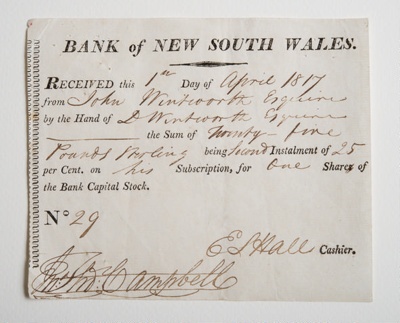 BANK of NEW SOUTH WALES.
RECEIVED this 1st Day of April 1817
from John Wentworth Esquire
by the Hand of D Wentworth Esquire
the Sum of Twenty-five
Pounds Sterling being Second Instalment of 25
per Cent. on his Subscription, for One Share of
the Bank Capital Stock.
No 29
E S Hall Cashier.
Jno Thos Campbell